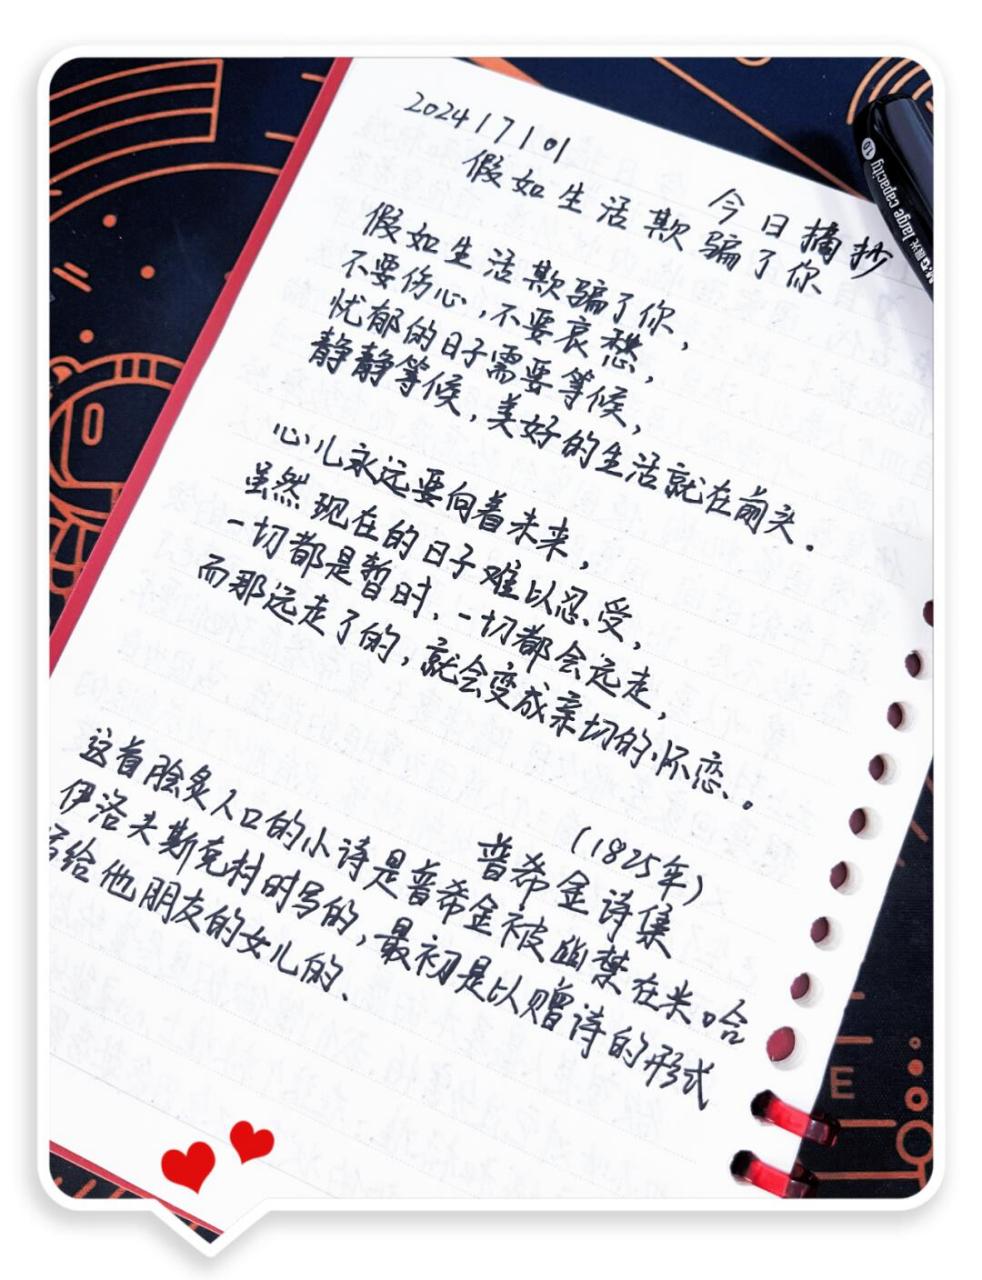 2024 / 7 / 01
今日摘抄
假如生活欺骗了你
假如生活欺骗了你，
不要伤心，不要哀愁，
忧郁的日子需要等候，
静静等候，美好的生活就在前头．
心儿永远要向着未来，
虽然现在的日子难以忍受，
一切都是暂时．一切都会远走，
而那远走了的，就会变成亲切的怀恋。
(1825年)
普希金诗集
这首脍炙人口的小诗是普希金被幽禁在米哈
伊洛夫斯克村时写的，最初是以赠诗的形式
写给他朋友的女儿的．
large capacity 1.0
E